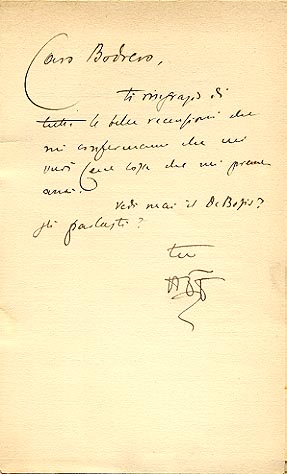 Caro Bodrero,
ti ringrazio di
tutti le belle recensioni che
mi confermano che mi
vuoi bene cosa che mi preme
assai.
Vedi mai il De Bosis?
gli parlasti?
tuo